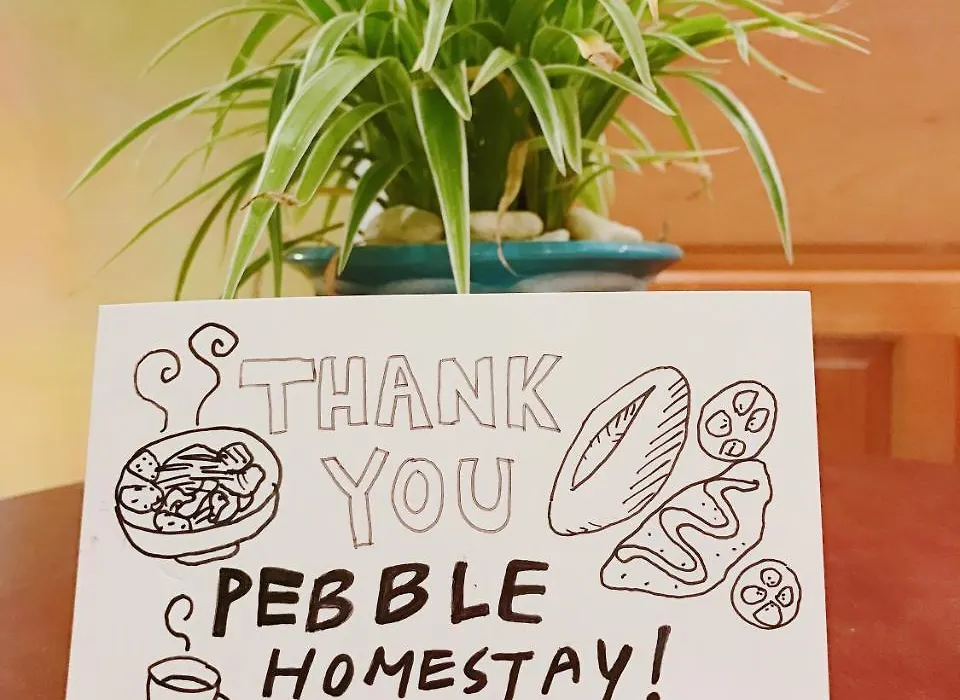 THANK
YOU
PEBBLE
HOMESTAY!